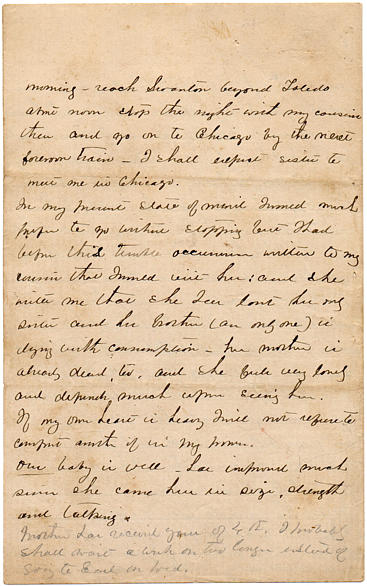 morning - reach Swanton beyond Toledo
at noon stop the night with my cousin
then and go on to Chicago by the next
forenoon train - I shall expect sister to
meet me in Chicago.
In my present state of mind I much
prefer to go without stopping but I had
before this terrible occurrence written to my
cousin that I would visit her; and she
writes me that she has lost her only
sister and her brother (an only one) is
dying with consumption - her mother is
already dead, too, and she feels very lonely
and depends much upon seeing her.
If my own heart is heavy I will not refuse to
comfort another if in my power.
Our baby is well - has improved much
since she came here in size, strength
and talking.
Mother has received yours of 4th. I probably
shall wait a week or two longer instead of
going to on Wed.